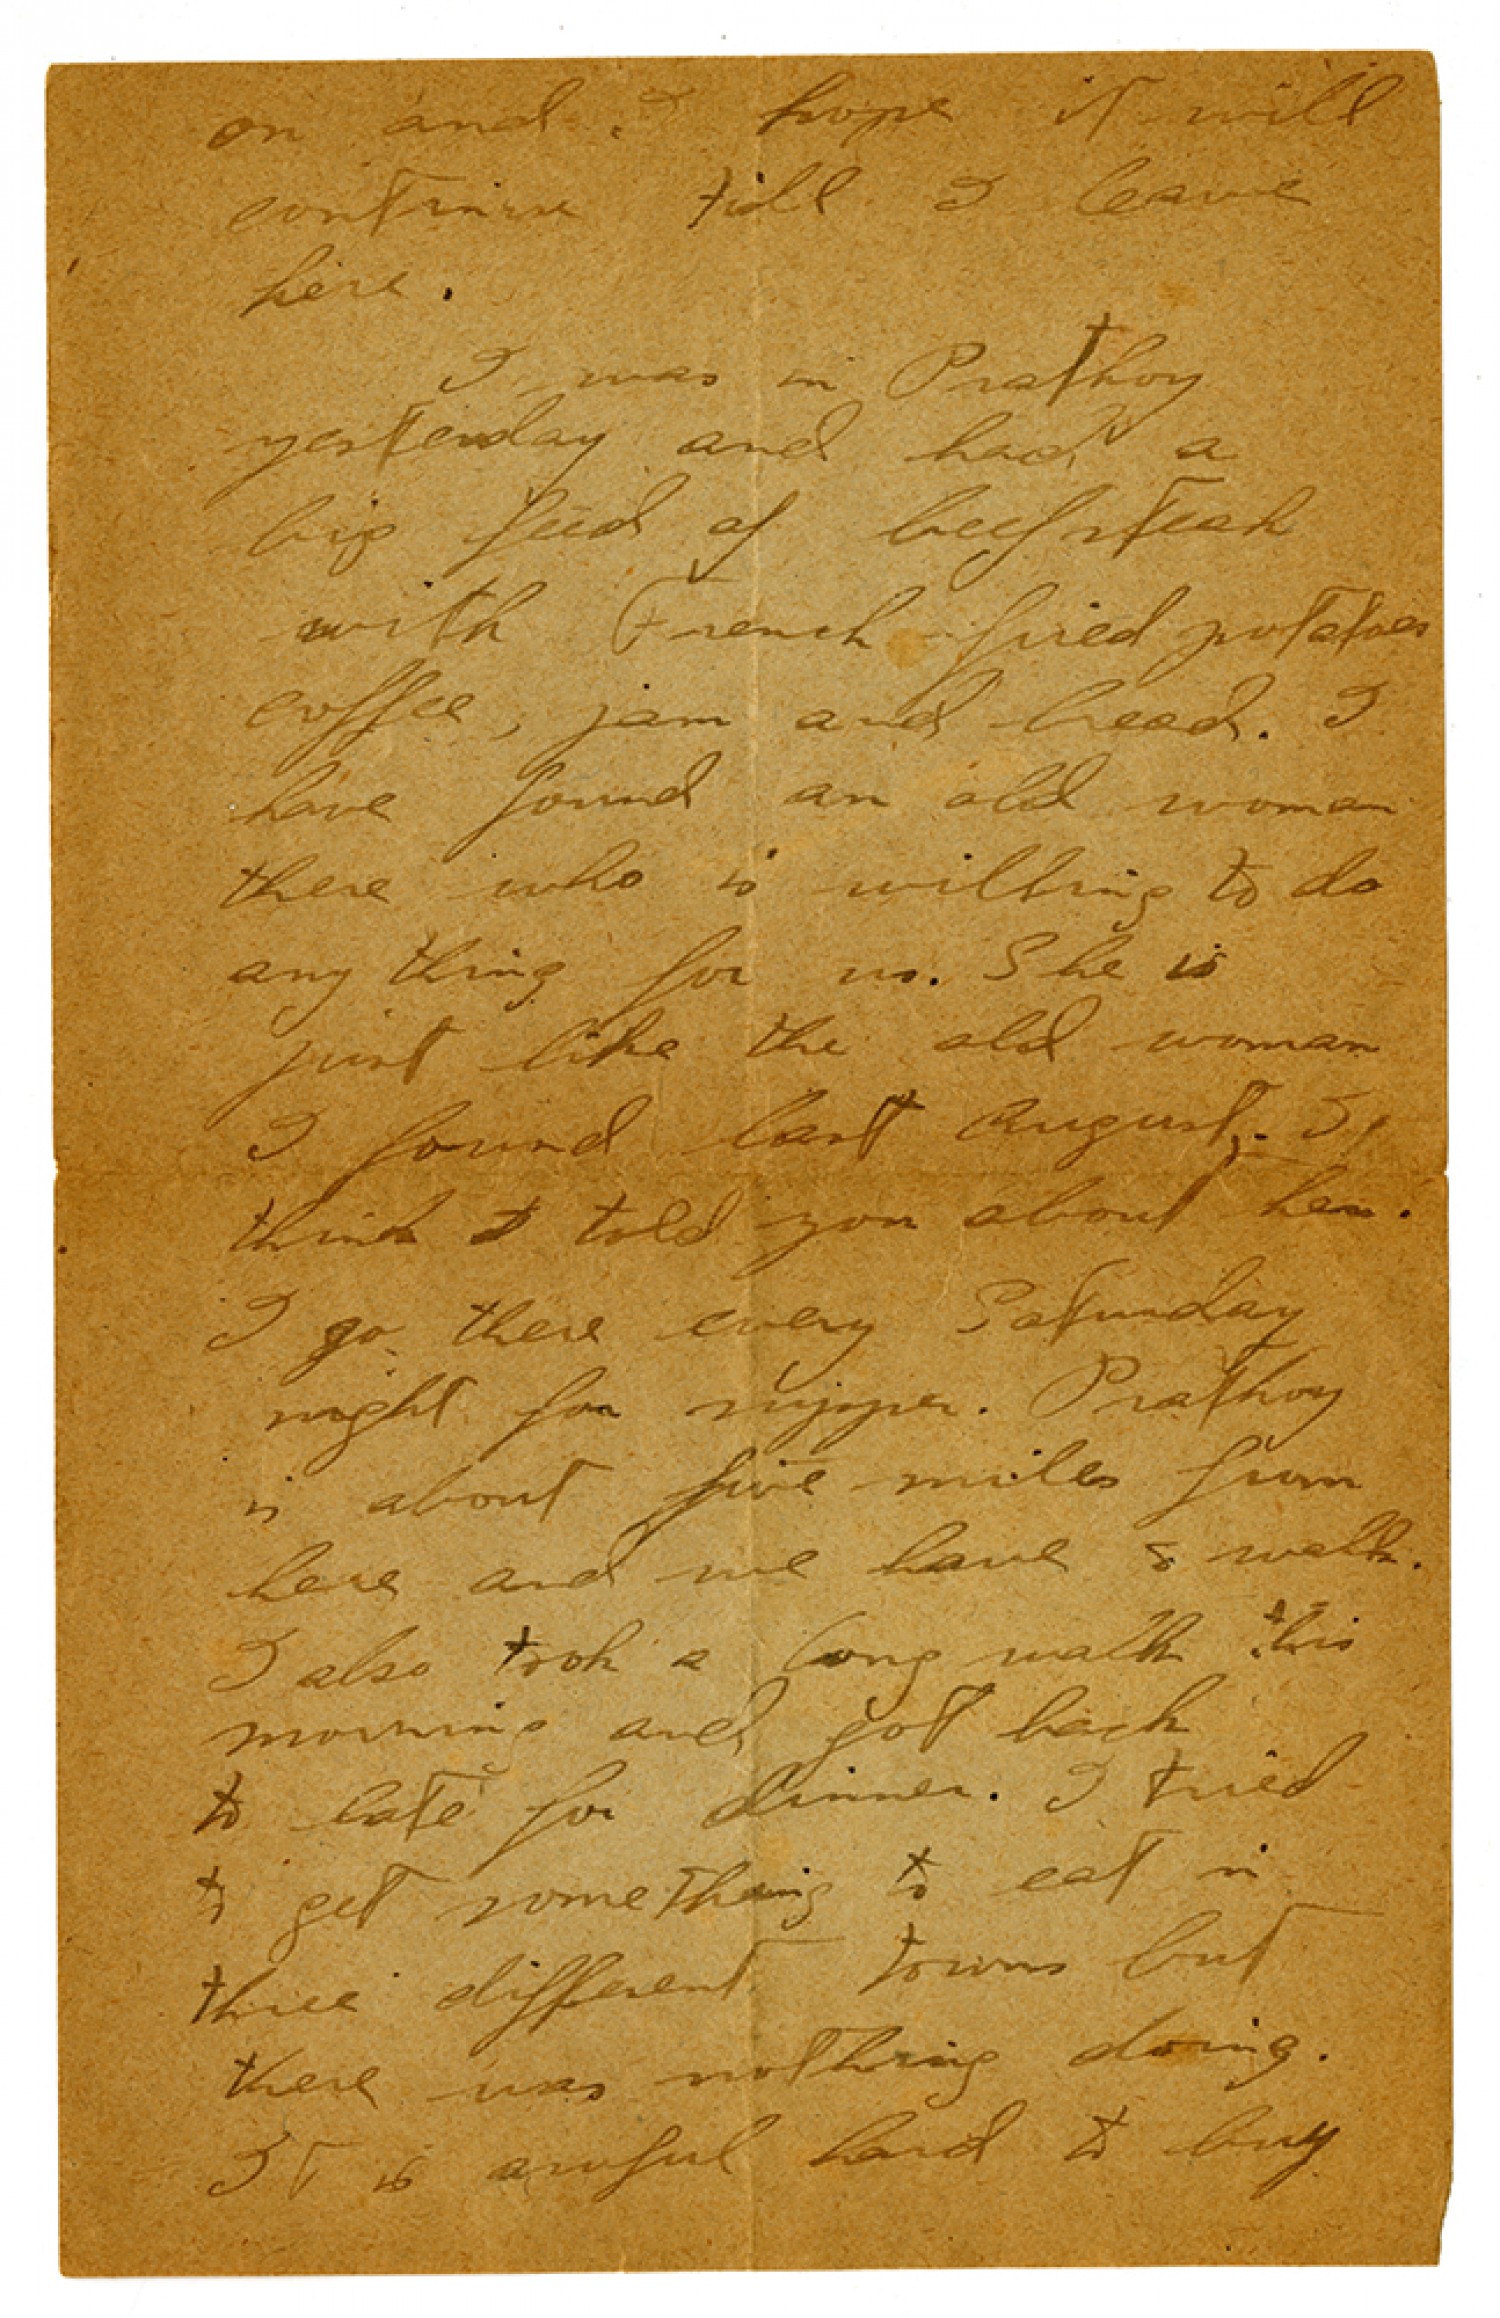 on and I hope it will
continue till I leave
here.
I was in Prathoy
yesterday and had a
big feed of beefsteak
with French fried potatoes
coffee, jam and bread. I
have found an old woman
there who is willing to do
any thing for us. She is
just like the old woman
I found last August. I
think I told you about her.
I go there every Saturday
night for supper. Prathoy
is about five miles from
here and we have to walk.
I also took a long walk this
morning and got back
to late for dinner. I tried
to get something to eat in
three different towns but
there was nothing doing.
It is awful hard to buy